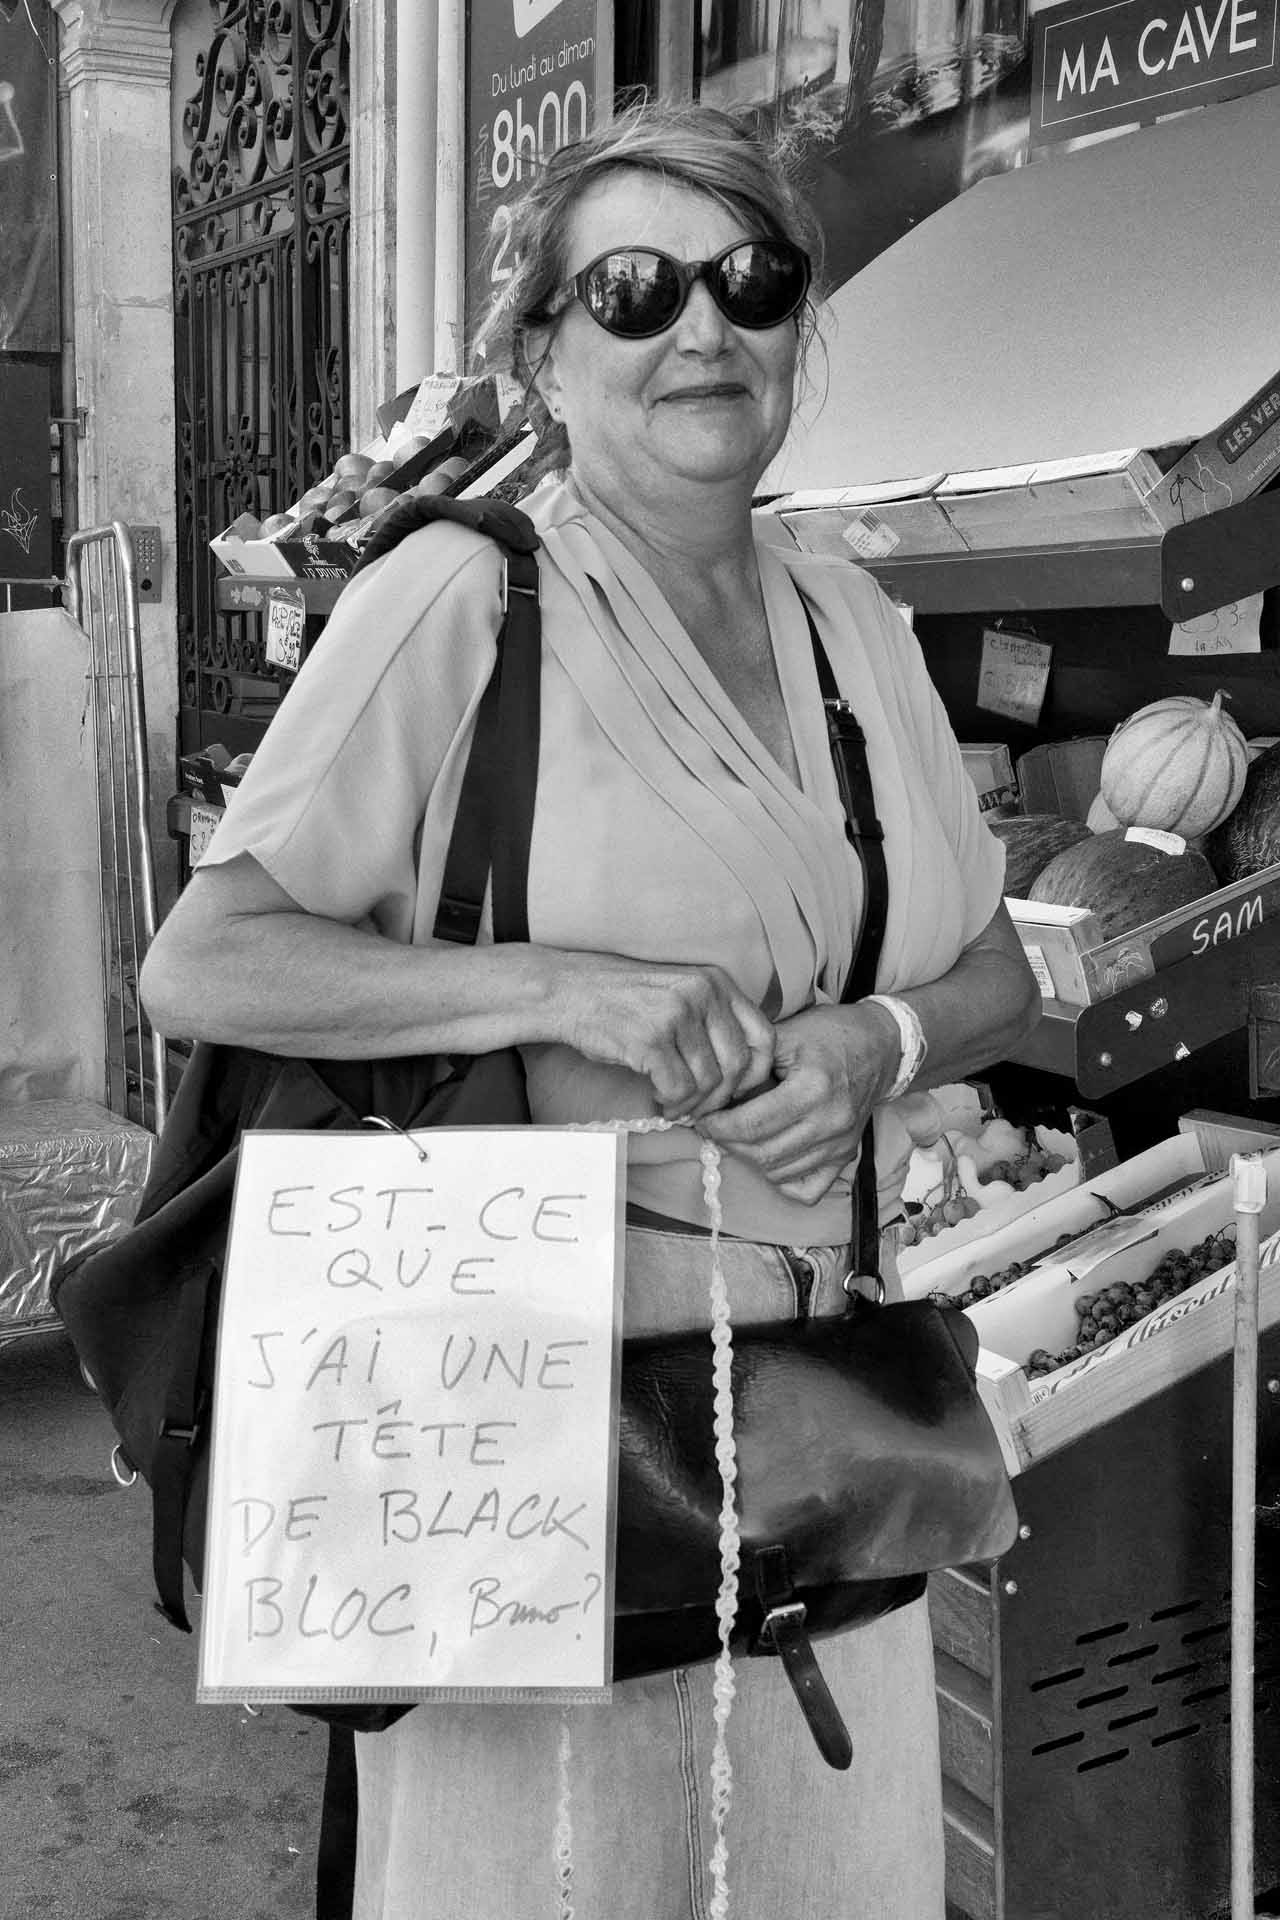 MA CAVE
Du lundi au diman
8h00
2
LES VER
SAM
EST-CE
QUE
J'AI UNE
TÊTE
DE BLACK
BLOC, Bruno?